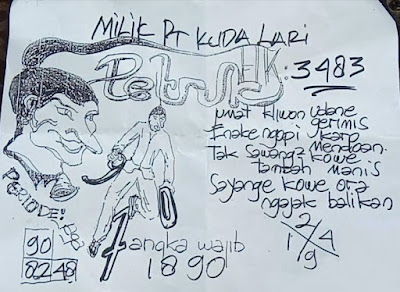 MILIK PT KUDA LARI
HK: 3483
jumat kliwon udane gerimis
Enake ngopi karo mendoan.
Tak sawang2 kowe tambah manis
Sayange kowe ora
ngajak balikan
PERIODE:
90
82 48
angka wajib
1890
2
1 4
9